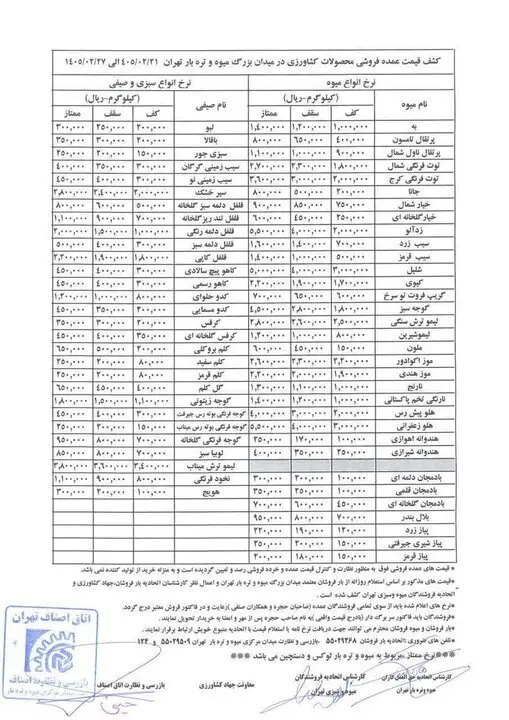 کشف قیمت عمده فروشی محصولات کشاورزی در میدان بزرگ میوه و تره بار تهران ۴۰۵/۰۲/۲۱ الی ۱۴۰۵/۰۲/۲۷
نرخ انواع میوه نرخ انواع سبزی و صیفی
نام میوه (کیلوگرم-ریال) نام صیفی (کیلوگرم-ریال)
کف سقف ممتاز کف سقف ممتاز
به ۱,۰۰۰,۰۰۰ ۱,۲۰۰,۰۰۰ ۱,۴۰۰,۰۰۰ لبو ۲۰۰,۰۰۰ ۲۵۰,۰۰۰ ۳۰۰,۰۰۰
پرتقال تامسون ۴۰۰,۰۰۰ ۶۵۰,۰۰۰ ۸۰۰,۰۰۰ باقالا ۲۰۰,۰۰۰ ۳۰۰,۰۰۰ ۳۵۰,۰۰۰
پرتقال ناول شمال ۹۰۰,۰۰۰ ۱,۰۰۰,۰۰۰ ۱,۱۰۰,۰۰۰ سبزی جور ۱۵۰,۰۰۰ ۲۰۰,۰۰۰ ۲۵۰,۰۰۰
توت فرنگی شمال ۱,۸۰۰,۰۰۰ ۲,۳۰۰,۰۰۰ ۲,۷۰۰,۰۰۰ سیب زمینی گرگان ۳۵۰,۰۰۰ ۴۰۰,۰۰۰
توت فرنگی کرج ۳,۰۰۰,۰۰۰ ۳,۶۰۰,۰۰۰ سیب زمینی نو ۳۰۰,۰۰۰ ۴۰۰,۰۰۰ ۴۵۰,۰۰۰
جانا ۲۰۰,۰۰۰ ۵۰۰,۰۰۰ ۸۰۰,۰۰۰ سیر خشک ۲,۰۰۰,۰۰۰ ۲,۴۰۰,۰۰۰ ۲,۸۰۰,۰۰۰
خیار شمال ۷۵۰,۰۰۰ ۸۵۰,۰۰۰ ۹۰۰,۰۰۰ فلفل دلمه سبز گلخانه ۵۰۰,۰۰۰ ۶۰۰,۰۰۰
خیارگلخانه ای ۲۵۰,۰۰۰ ۴۵۰,۰۰۰ ۶۰۰,۰۰۰ فلفل تند ریزگلخانه ۷۰۰,۰۰۰ ۹۰۰,۰۰۰ ۱,۱۰۰,۰۰۰
زدآلو ۴,۰۰۰,۰۰۰ ۵,۵۰۰,۰۰۰ فلفل دلمه رنگی ۱,۰۰۰,۰۰۰ ۱,۵۰۰,۰۰۰ ۲,۰۰۰,۰۰۰
سیب زرد ۷۰۰,۰۰۰ ۱,۴۰۰,۰۰۰ ۱,۶۰۰,۰۰۰ فلفل دلمه سبز ۳۰۰,۰۰۰ ۴۰۰,۰۰۰ ۵۰۰,۰۰۰
سیب قرمز ۵۰۰,۰۰۰ ۱,۰۰۰,۰۰۰ ۱,۴۰۰,۰۰۰ فلفل کاپی ۱,۸۰۰,۰۰۰ ۱,۹۰۰,۰۰۰ ۲,۲۰۰,۰۰۰
شلیل ۳,۰۰۰,۰۰۰ ۴,۰۰۰,۰۰۰ ۵,۰۰۰,۰۰۰ کاهو پیچ سالادی ۴۰۰,۰۰۰ ۴۵۰,۰۰۰
کیوی ۱,۷۰۰,۰۰۰ ۱,۹۰۰,۰۰۰ ۲,۲۰۰,۰۰۰ کاهو رسمی ۴۰۰,۰۰۰ ۴۵۰,۰۰۰
گریپ فروت تو سرخ ۶۰۰,۰۰۰ ۶۵۰,۰۰۰ ۷۰۰,۰۰۰ کدو حلوای ۸۰۰,۰۰۰ ۱,۰۰۰,۰۰۰ ۱,۲۰۰,۰۰۰
گوجه سبز ۱,۸۰۰,۰۰۰ ۲,۸۰۰,۰۰۰ ۴,۵۰۰,۰۰۰ کدو مسمایی ۲۰۰,۰۰۰ ۳۵۰,۰۰۰ ۴۵۰,۰۰۰
لیمو ترش سنگی ۲,۵۰۰,۰۰۰ ۲,۶۰۰,۰۰۰ ۲,۸۰۰,۰۰۰ کرفس ۲۰۰,۰۰۰ ۳۰۰,۰۰۰ ۳۵۰,۰۰۰
لیموشیرین ۸۰۰,۰۰۰ ۱,۲۰۰,۰۰۰ کرفس گلخانه ای ۳۵۰,۰۰۰ ۴۰۰,۰۰۰ ۴۵۰,۰۰۰
ملون ۱۵۰,۰۰۰ ۴۵۰,۰۰۰ ۶۰۰,۰۰۰ گلم بروکلی ۲۰۰,۰۰۰ ۵۰۰,۰۰۰ ۶۵۰,۰۰۰
موز اکوادور ۲,۲۰۰,۰۰۰ ۲,۳۰۰,۰۰۰ ۲,۶۰۰,۰۰۰ کلم سفید ۸۰,۰۰۰ ۲۰۰,۰۰۰ ۲۵۰,۰۰۰
موز هندی ۱,۹۰۰,۰۰۰ ۲,۰۰۰,۰۰۰ ۲,۲۰۰,۰۰۰ کلم قرمز ۸۰,۰۰۰ ۲۰۰,۰۰۰ ۲۵۰,۰۰۰
نارنج ۱,۱۰۰,۰۰۰ ۱,۳۰۰,۰۰۰ گل کلم ۴۰۰,۰۰۰ ۶۵۰,۰۰۰
نارنگی تخم پاکستانی ۱,۰۰۰,۰۰۰ ۱,۲۰۰,۰۰۰ ۱,۴۰۰,۰۰۰ گوجه زیتونی ۱,۱۰۰,۰۰۰ ۱,۵۰۰,۰۰۰ ۱,۸۰۰,۰۰۰
هلو پیش رس ۲,۰۰۰,۰۰۰ ۳,۰۰۰,۰۰۰ ۴,۰۰۰,۰۰۰ گوجه فرنگی بوته رس جیرفت ۳۰۰,۰۰۰ ۴۰۰,۰۰۰ ۴۵۰,۰۰۰
هلو زعفرانی ۳,۰۰۰,۰۰۰ ۴,۰۰۰,۰۰۰ ۵,۵۰۰,۰۰۰ گوجه فرنگی بوته رس میناب ۱۵۰,۰۰۰ ۲۰۰,۰۰۰ ۲۵۰,۰۰۰
هندوانه اهوازی ۱۰۰,۰۰۰ ۱۷۰,۰۰۰ ۲۵۰,۰۰۰ گوجه فرنگی گلخانه ۷۰۰,۰۰۰ ۸۰۰,۰۰۰ ۹۵۰,۰۰۰
هندوانه شیرازی ۲۵۰,۰۰۰ ۳۵۰,۰۰۰ ۴۰۰,۰۰۰ لوبیا سبز ۵۰۰,۰۰۰ ۷۰۰,۰۰۰ ۸۵۰,۰۰۰
لیمو ترش میناب ۳,۴۰۰,۰۰۰ ۳,۶۰۰,۰۰۰ ۳,۸۰۰,۰۰۰
بادمجان دلمه ای ۱۰۰,۰۰۰ ۲۰۰,۰۰۰ ۳۰۰,۰۰۰ نخود فرنگی ۸۰۰,۰۰۰ ۹۰۰,۰۰۰ ۱,۱۰۰,۰۰۰
بادمجان قلمی ۱۰۰,۰۰۰ ۲۵۰,۰۰۰ ۳۵۰,۰۰۰ هویج ۱۰۰,۰۰۰ ۲۰۰,۰۰۰ ۳۰۰,۰۰۰
بادمجان گلخانه ای ۴۵۰,۰۰۰ ۶۰۰,۰۰۰ ۷۰۰,۰۰۰
بلال بندر ۷۰۰,۰۰۰ ۸۰۰,۰۰۰ ۹۵۰,۰۰۰
پیاز زرد ۱۲۰,۰۰۰ ۱۹۰,۰۰۰ ۲۲۰,۰۰۰
پیاز شیری جیرفتی ۱۵۰,۰۰۰ ۲۰۰,۰۰۰ ۲۵۰,۰۰۰
پیاز قرمز ۱۵۰,۰۰۰ ۱۸۰,۰۰۰ ۲۰۰,۰۰۰
- قیمت های عمده فروشی فوق به منظور نظارت و کنترل قیمت عمده و خرده فروشی رصد و تعیین گردیده است و به منزله خرید از تولید کننده نمی باشد.
- قیمت های مذکور بر اساس استعلام روزانه از بار فروشان معتمد میدان بزرگ میوه و تره بار تهران و اعمال نظر کارشناسان اتحادیه بار فروشان، جهاد کشاورزی و اتحادیه فروشندگان میوه وسبزی تهران کشف گردید.
- نرخ های اعلام شده باید از سوی تمامی فروشندگان عمده (صاحبان حجره و همکاران صنفی) رعایت و در فاکتور فروش معتبر درج گردد.
- فروشندگان باید فاکتور مبرگ دار (بادرج قیمت واقعی) به نام صاحب حجره پس از مهر و امضا به خریدار تحویل نمایند.
- فروشندگان میوه و بار فروشان محترم می توانند جهت دریافت نرخ نامه یا استعلام قیمت با اتحادیه متبوع خویش ارتباط برقرار نمایند.
- تلفن های ضروری: اتحادیه بار فروشان ۵۵۰۲۹۲۶۸ بازرسی و نظارت میدان مرکزی میوه و تره بار تهران ۵۵۰۲۹۵۰۹ و ۱۲۴
***نرخ ممتاز مربوط به میوه و تره بار لوکس و دستچین می باشد ***
کارشناس اتحادیه حق العمل کاران میوه و تره بار تهران
کارشناس اتحادیه فروشندگان میوه و سبزی تهران
معاونت جهاد کشاورزی
بازرسی و نظارت اتاق اصناف
اتاق اصناف تهران
بازرسی و نظارت اصناف